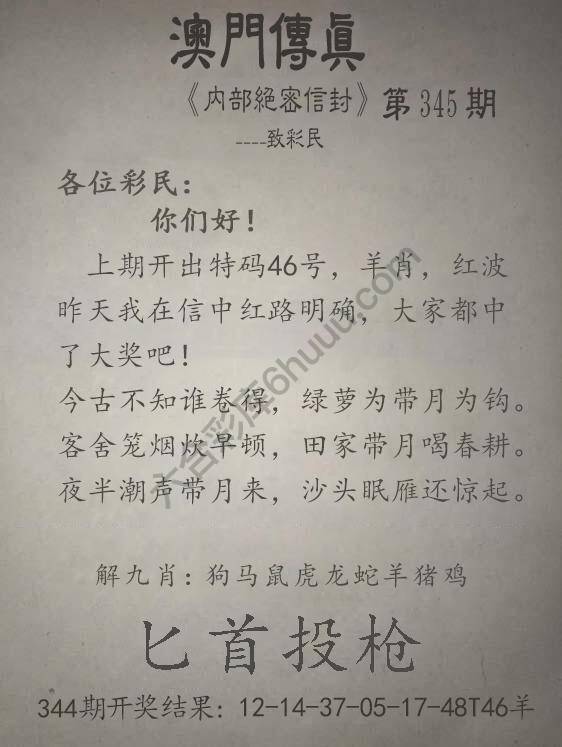 澳門傳眞
《内部絕密信封》第345期
----致彩民
各位彩民：
你们好！
上期开出特码46号，羊肖，红波
昨天我在信中红路明确，大家都中
了大奖吧！
今古不知谁卷得，绿萝为带月为钩。
客舍笼烟炊早顿，田家带月喝春耕。
夜半潮声带月来，沙头眠雁还惊起。
六合彩库6huuu.com
解九肖：狗马鼠虎龙蛇羊猪鸡
匕首投枪
344期开奖结果：12-14-37-05-17-48T46羊